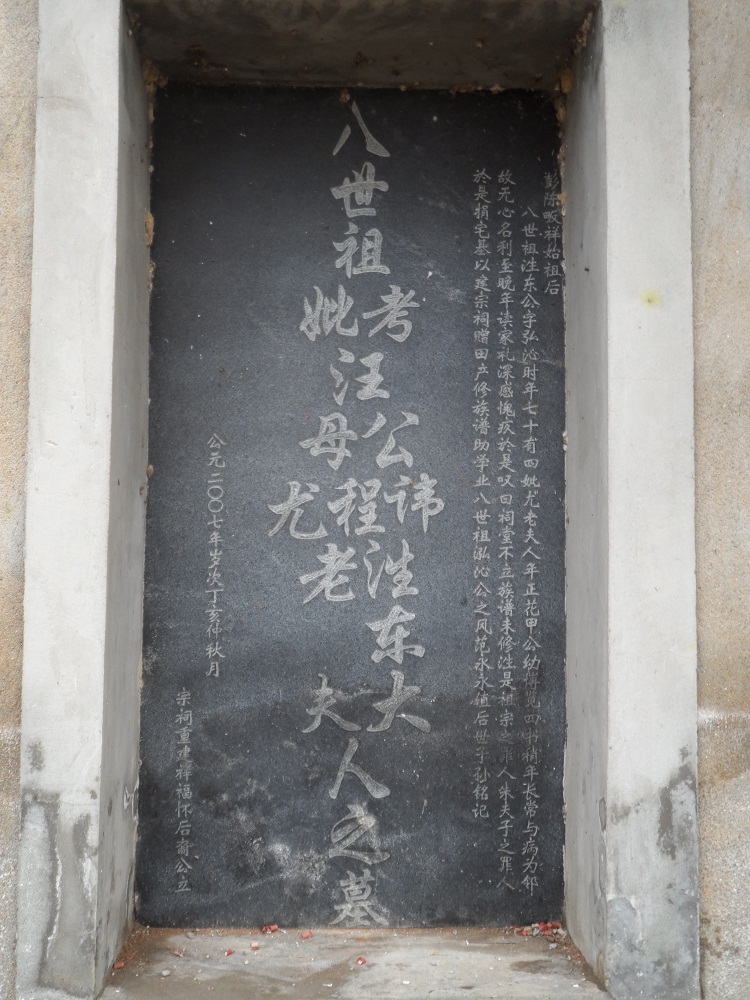 彭陈畈祥始祖后
八世祖泩东公字弘沁时年七十有四妣尤老夫人年正花甲公幼博览四书稍年长常与病为邻
故无心名利至晚年读家礼深感愧疚於是叹曰祠堂不立族谱未修泩是祖宗之罪人朱夫子之罪人
於是捐宅基以建宗祠赠田产修族谱助学业八世祖泓沁公之风范永永值后世子孙铭记
八世祖
考妣
汪
公讳泩东大
母程尤老夫
人之墓
公元二〇〇七年岁次丁亥仲秋月
宗祠重建祥福怀后裔公立